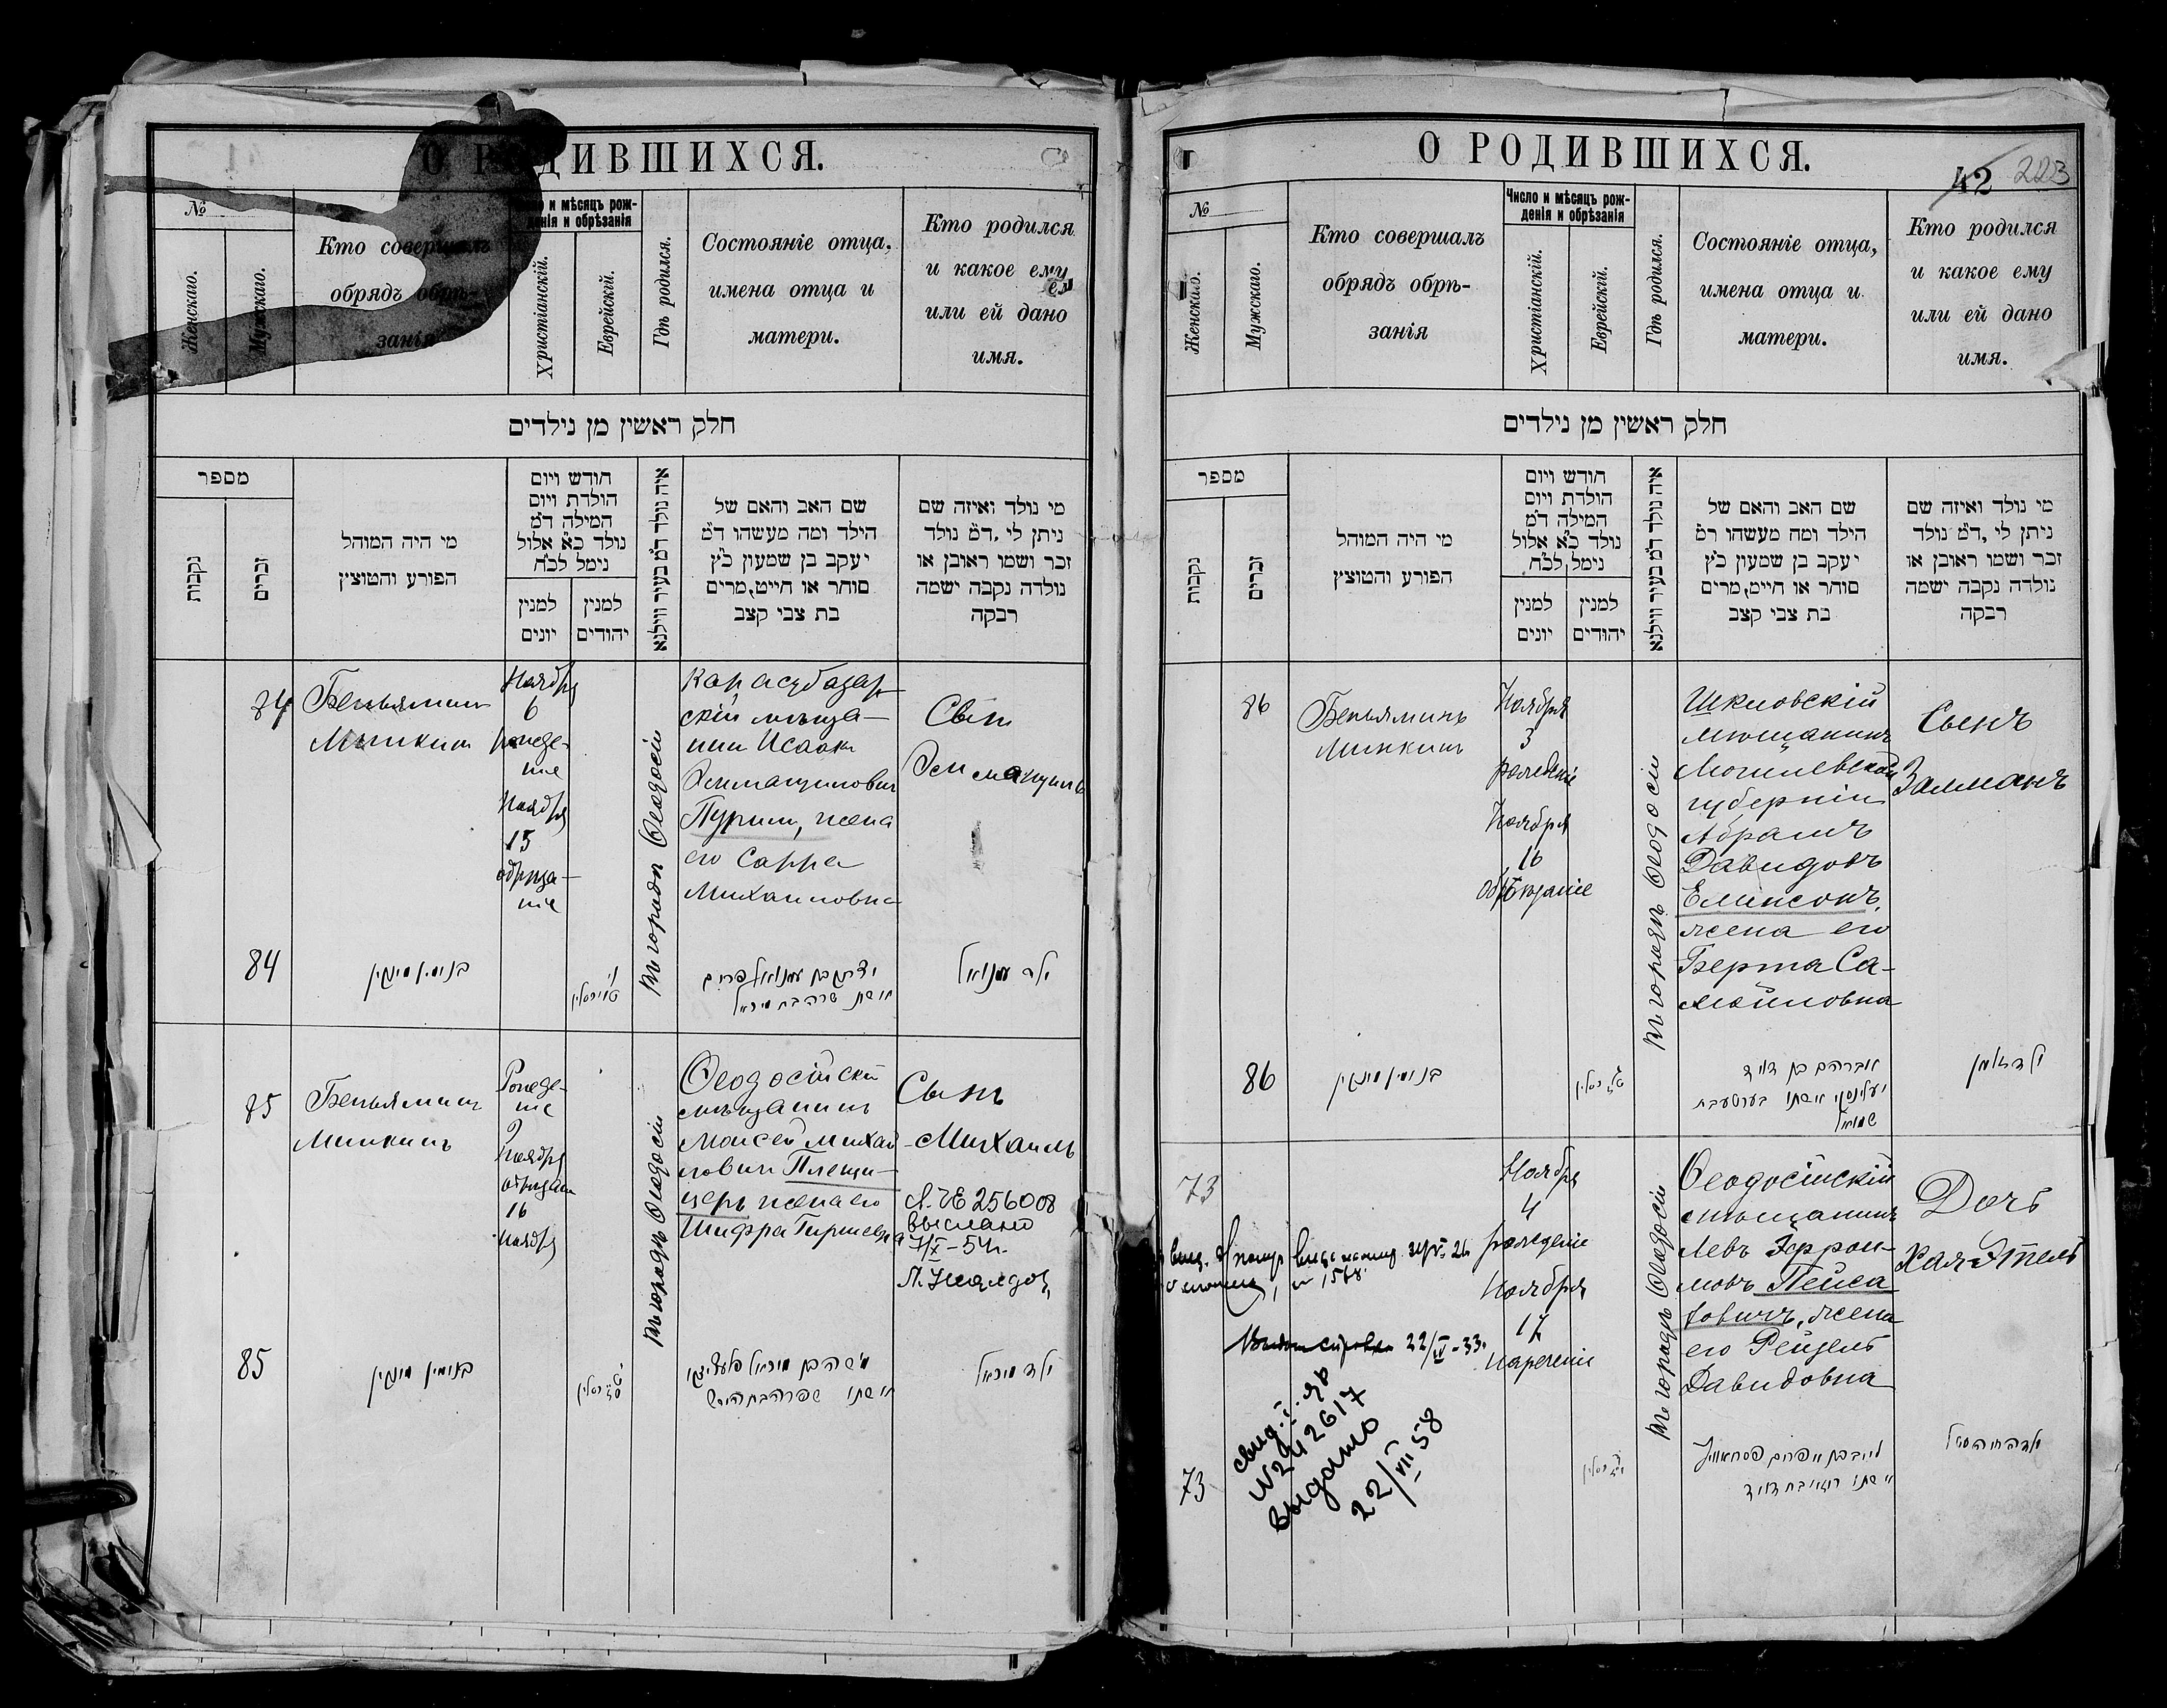 О РОДИВШИХСЯ.
№
Женскаго.
Мужскаго.
Кто совершалъ
обрядъ обрѣ-
занія
Число и мѣсяцъ рож-
денія и обрѣзанія
Христіанскій.
Еврейскій.
Гдѣ родился.
Состояніе отца,
имена отца и
матери.
Кто родился
и какое ему
или ей дано
имя.
חלק ראשין מן נילדים
מספר
נקבות
זכרים
מי היה המוהל
הפורע והמוצץ
חודש ויום
הולדת ויום
המילה ד״מ
נולד כ״א אלול
נימל לכ״ח
למנין
יונים
למנין
יהודים
איה נולד ד״מ בעיר ווילנא
שם האב והאם של
הילד ומה מעשהו ד״מ
יעקב בן שמעון כ״ץ
סוחר או חייט, מרים
בת צבי קצב
מי נולד ואיזה שם
ניתן לי, ד״מ נולד
זכר ושמו ראובן או
נולדה נקבה ישמה
רבקה
84
Беньямин
Минкин
Ноября
6
рожде-
ние
Ноября
13
обреза-
ние
въ городѣ Ѳеодосіи
Карасубазар-
скій мѣща-
нин Исаак
Эммануилович
Пурим, жена
его Сарра
Михаиловна
Сын
Эммануилъ
84
בנימין מינקין
ילד עמנואל
85
Беньямин
Минкинъ
Рожде-
ние
9
Ноября
обрезан
16
Ноября
въ городѣ Ѳеодосіи
Ѳеодосійскій
мѣщанинъ
Моисей Михай
лович Плещи-
церъ жена его
Шифра Гиршевна
Сынъ
Михаилъ
Л. ЧЕ 256008
выслано
7/X-54г.
85
בנימין מינקין
ילד מיכאל
О РОДИВШИХСЯ.
42 223
№
Женскаго.
Мужскаго.
Кто совершалъ
обрядъ обрѣ-
занія
Число и мѣсяцъ рож-
денія и обрѣзанія
Христіанскій.
Еврейскій.
Гдѣ родился.
Состояніе отца,
имена отца и
матери.
Кто родился
и какое ему
или ей дано
имя.
חלק ראשין מן נילדים
מספר
נקבות
זכרים
מי היה המוהל
הפורע והמוצץ
חודש ויום
הולדת ויום
המילה ד״מ
נולד כ״א אלול
נימל לכ״ח
למנין
יונים
למנין
יהודים
איה נולד ד״מ בעיר ווילנא
שם האב והאם של
הילד ומה מעשהו ד״מ
יעקב בן שמעון כ״ץ
סוחר או חייט, מרים
בת צבי קצב
מי נולד ואיזה שם
ניתן לי, ד״מ נולד
זכר ושמו ראובן או
נולדה נקבה ישמה
רבקה
86
Беньяминъ
Минкинъ
Ноября
3
рожденіе
Ноября
16
обрѣзаніе
въ городѣ Ѳеодосіи
Шкловскій
мѣщанинъ
Могилевской
губерніи
Абрамъ
Давидовъ
Елинсонъ,
жена его
Берта Са-
мойловна
Сынъ
Залманъ
86
בנימין מינקין
אברהם בן דוד
שמואל
ילד זאמן
73
Ноября
4
рожденіе
Ноября
17
нареченіе
въ городѣ Ѳеодосіи
Ѳеодосійскій
мѣщанинъ
Левъ Эфрои-
мовъ Пейса
ховичъ, жена
его Рейзель
Давидовна
Дочь
Хая-Этель
Выдана справка 22/IV-33.
свид. I. ЯР
№ 242617
выдано
22/VII 58
73